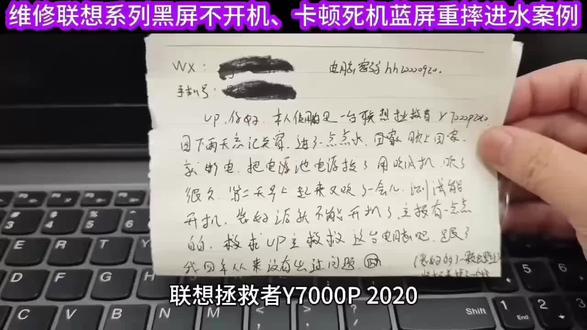 维修联想系列黑屏不开机、卡顿死机蓝屏重摔进水案例
WX: 电脑密码 hh20000920.
手机号:
UP,你好,本人使用的是一台联想拯救者 Y7000P2020
因下雨天忘记关窗,进了一点点水,回家 晚上回家
就断电,把电源池电源拔了用吹风机 吹了
很久,第二天早上起来又吹了一会儿,试试能
开机,装的话就不能开机了,主板有一点点
的,救求UP主救救这台电脑吧,跟了
我四年从来没有出过问题
联想拯救者Y7000P 2020